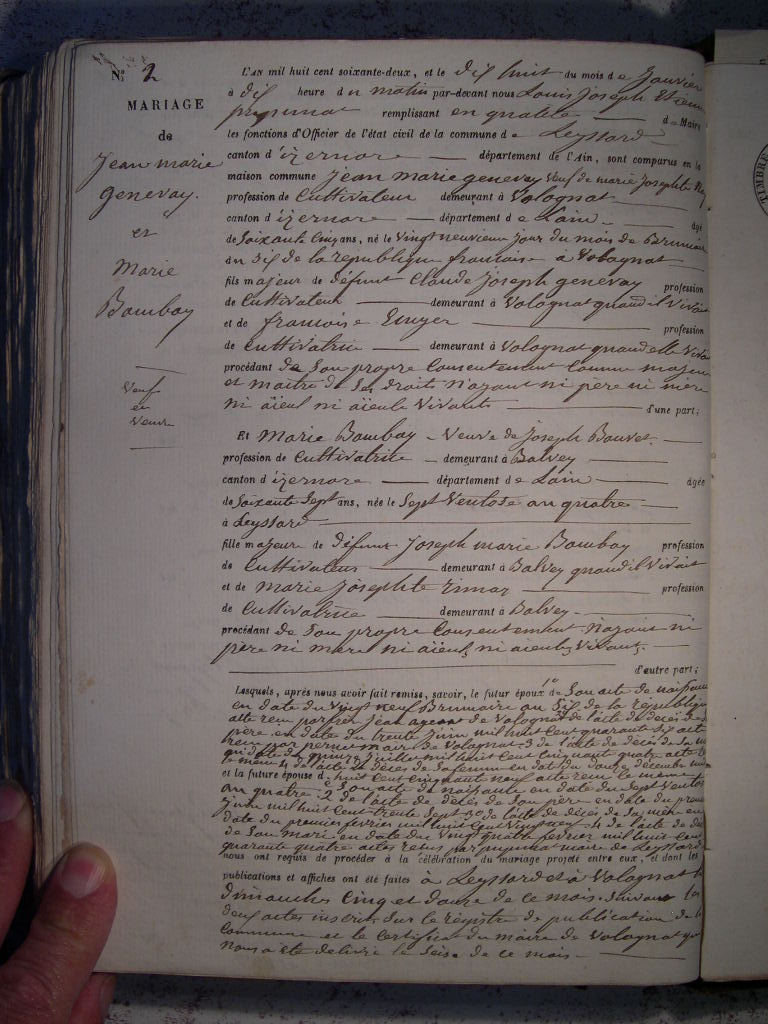 N.º 2
MARIAGE
de
Jean marie
genevay.
et
Marie
Bombay
Veuf
et
Veuve
L'AN mil huit cent soixante-deux, et le dix huit du mois de Janvier
à dix heure du matin par-devant nous Louis Joseph
remplissant en qualité de Maire
les fonctions d'Officier de l'état civil de la commune de Leyssard
canton d'izernore département de l'Ain, sont comparus en la
maison commune Jean marie genevay Veuf de marie Josephte
profession de Cultivateur demeurant à Volognat
canton d'izernore département de Lain âgé
de Soixante Cinq ans, né le Vingt neuvieme jour du mois de Brumaire
an Six de la republique francaise à Volognat
fils majeur de défunt Claude Joseph genevay profession
de Cultivateur demeurant à Volognat quand il Vivait
et de francoise profession
de Cultivatrice demeurant à Volognat quand elle Vivait
procédant de Son propre Consentement Comme majeur
et maitre de Ses droits n'ayant ni père ni mère
ni äieul ni äieule Vivants d'une part;
Et Marie Bombay Veuve de Joseph Bouvet
profession de Cultivatrice demeurant à Balvey
canton d'izernore département de Lain âgée
de Soixante Sept ans, née le Sept Ventose an quatre
à Leyssard
fille majeure de défunt Joseph marie Bombay profession
de Cultivateur demeurant à Balvey quand il Vivait
et de marie Josephte profession
de Cultivatrice demeurant à Balvey
procédant de Son propre Consentement n'ayant ni
père ni mere ni äieul, ni äieule, Vivant,
d'autre part;
Lesquels, après nous avoir fait remise, savoir, le futur époux 1º de Son acte de naissance
en date du Vingt neuf Brumaire an Six de la republique
de Volognat 2º de l'acte de décès de
père en date du trente Juin mil huit Cent quarante Six acte
maire de Volognat 3 de l'acte de décès de
du quinze Juillet mil huit Cent Cinquante quatre acte
le meme 4 de l'acte de décès de Sa femme en date du douze décembre mil
et la future épouse d. huit Cent Cinquante neuf acte recu le meme
an quatre 2 de l'acte de décès de Son père en date du premier
juin mil huit Cent trente Sept 3º de l'acte de décès de Sa mère en
date du premier fevrier mil huit Cent 4 de l'acte de décès
de Son mari en date du Vingt quatre fevrier mil huit Cent
quarante quatre actes recus par maire de Leyssard
nous ont requis de procéder à la célébration du mariage projeté entre eux, et dont les
publications et affiches ont été faites à Leyssard et à Volognat les
dimanches Cinq et douze de ce mois Suivant les
deux actes inscrits Sur le registre de publication de la
Commune et le certificat du maire de Volognat qui
nous a été délivré le Seize de ce mois